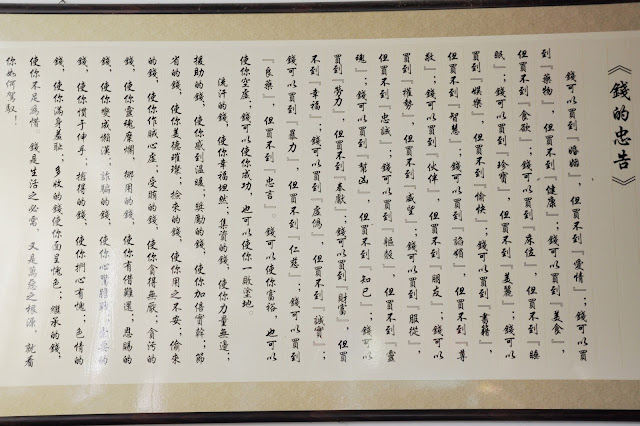 《錢的忠告》
錢可以買到『婚姻』，但買不到『愛情』；錢可以買
到『藥物』，但買不到『健康』；錢可以買到『美食』，
但買不到『食欲』；錢可以買到『床位』，但買不到『睡
眠』；錢可以買到『珍寶』，但買不到『美麗』；錢可以
買到『娛樂』，但買不到『愉快』；錢可以買到『書籍』，
但買不到『智慧』；錢可以買到『諂媚』，但買不到『尊
敬』；錢可以買到『伙伴』，但買不到『朋友』；錢可以
買到『權勢』，但買不到『威望』；錢可以買到『服從』，
但買不到『忠誠』；錢可以買到『軀殼』，但買不到『靈
魂』；錢可以買到『幫凶』，但買不到『知己』；錢可以
買到『勞力』，但買不到『奉獻』；錢可以買到『財富』，但買
不到『幸福』；錢可以買到『虛偽』，但買不到『誠實』；
錢可以買到『暴力』，但買不到『仁慈』；錢可以買到
『良藥』，但買不到『忠言』。錢可以使你富裕，也可以
使你空虛；錢可以使你成功，也可以使你一敗塗地
流汗的錢，使你幸福坦然；集資的錢，使你力量無邊；
援助的錢，使你感到溫暖；獎勵的錢，使你加倍實幹；節
省的錢，使你美德璀璨；撿來的錢，使你用之不安；偷來
的錢，使你作賊心虛；受賄的錢，使你貪得無厭；貪污的
錢，使你靈魂腐爛；挪用的錢，使你有借難還；恩賜的
錢，使你變成懶漢；詐騙的錢，使你心驚；的
錢，使你慣于伸手；捐得的錢，使你捫心有愧；色情的
錢，使你滿身羞恥；多收的錢使你面呈愧色；繼承的錢，
使你不足為惜 錢是生活之必需，又是萬惡之根源，就看
你如何駕馭！